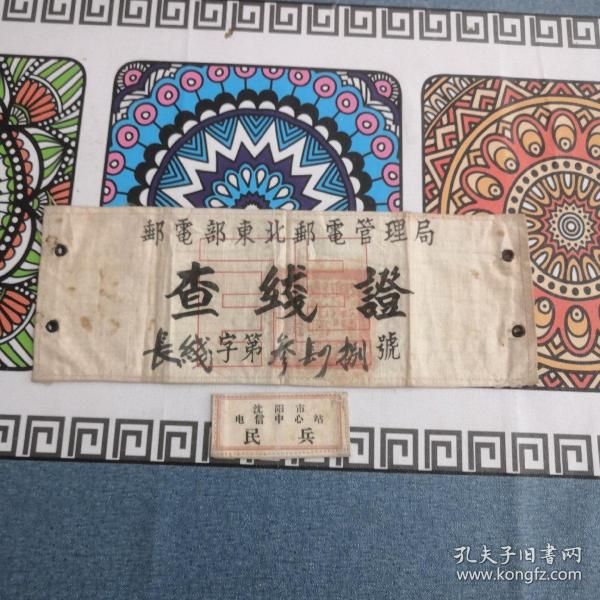 郵電部東北郵電管理局
查綫證
長綫字第叁捌號
沈阳市
电信中心站
民兵
孔夫子旧书网
www.kongfz.com